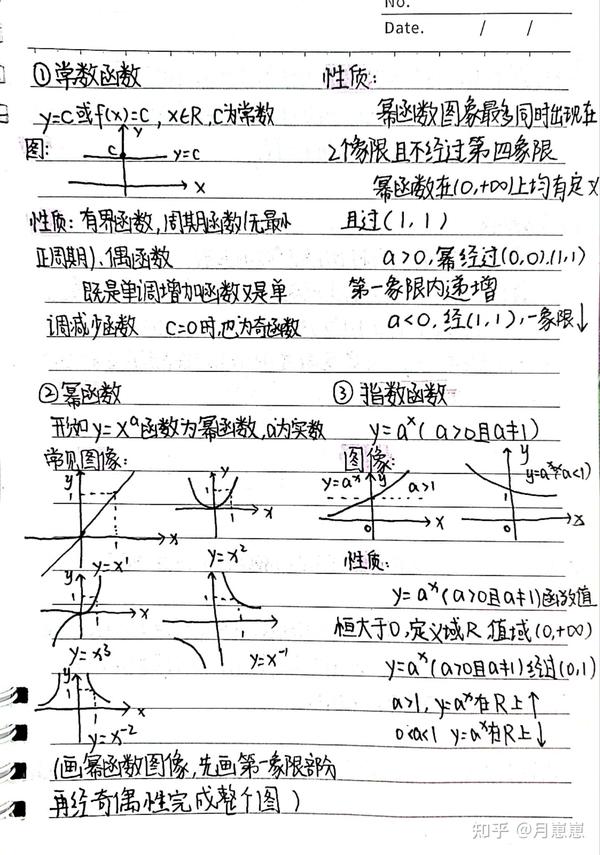 No.
Date. / /
①常数函数
y=C或f(x)=C，x∈R，C为常数
图：
y
C
y=c
x
性质：有界函数，周期函数(无最小
正周期)、偶函数
既是单调增加函数又是单
调减少函数 C=0时，也为奇函数
性质：
幂函数图象最多同时出现在
2个像限且不经过第四象限
幂函数在(0,+∞)上均有定义
且过(1,1)
a>0，幂经过(0,0).(1,1)
第一象限内递增
a<0，经(1,1)，一象限↓
②幂函数
形如y=xᵃ函数为幂函数，a为实数
常见图像：
y
1
x
y=x¹
y
1
x
y=x²
y
1
x
y=x³
1
y=x⁻¹
y
1
x
y=x⁻²
(画幂函数图像，先画第一象限部分
再经奇偶性完成整个图)
③指数函数
y=aˣ(a>0且a≠1)
图像：
y=aˣ
y
a>1
0
x
y
1
0
x
性质：
y=aˣ(a>0且a≠1)函数值
恒大于0，定义域R 值域(0,+∞)
y=aˣ(a>0且a≠1)经过(0,1)
a>1，y=aˣ在R上↑
0<a<1 y=aˣ在R上↓
知乎 @月崽崽